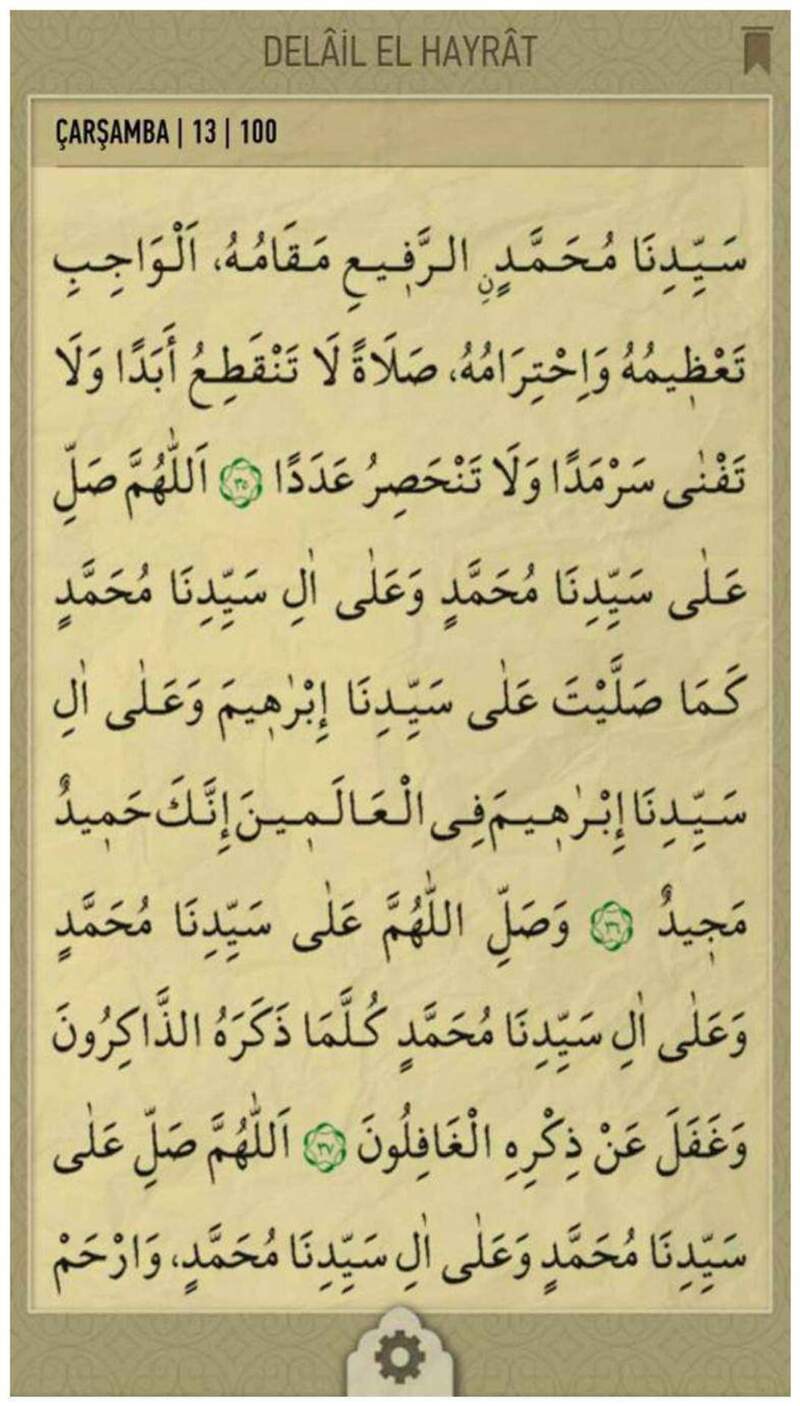 DELÂİL EL HAYRÂT
ÇARŞAMBA | 13 | 100
سَيِّدِنَا مُحَمَّدٍنِ الرَّفٖيعِ مَقَامُهُ، اَلْوَاجِبِ
تَعْظٖيمُهُ وَاِحْتِرَامُهُ، صَلَاةً لَا تَنْقَطِعُ أَبَدًا وَلَا
تَفْنٰى سَرْمَدًا وَلَا تَنْحَصِرُ عَدَدًا ٣٥ اَللّٰهُمَّ صَلِّ
عَلٰى سَيِّدِنَا مُحَمَّدٍ وَعَلٰى اٰلِ سَيِّدِنَا مُحَمَّدٍ
كَمَا صَلَّيْتَ عَلٰى سَيِّدِنَا إِبْرٰهٖيمَ وَعَلٰى اٰلِ
سَيِّدِنَا إِبْرٰهٖيمَ فِى الْعَالَمٖينَ إِنَّكَ حَمٖيدٌ
مَجٖيدٌ ٣٦ وَصَلِّ اللّٰهُمَّ عَلٰى سَيِّدِنَا مُحَمَّدٍ
وَعَلٰى اٰلِ سَيِّدِنَا مُحَمَّدٍ كُلَّمَا ذَكَرَهُ الذَّاكِرُونَ
وَغَفَلَ عَنْ ذِكْرِهِ الْغَافِلُونَ ٣٧ اَللّٰهُمَّ صَلِّ عَلٰى
سَيِّدِنَا مُحَمَّدٍ وَعَلٰى اٰلِ سَيِّدِنَا مُحَمَّدٍ، وَارْحَمْ